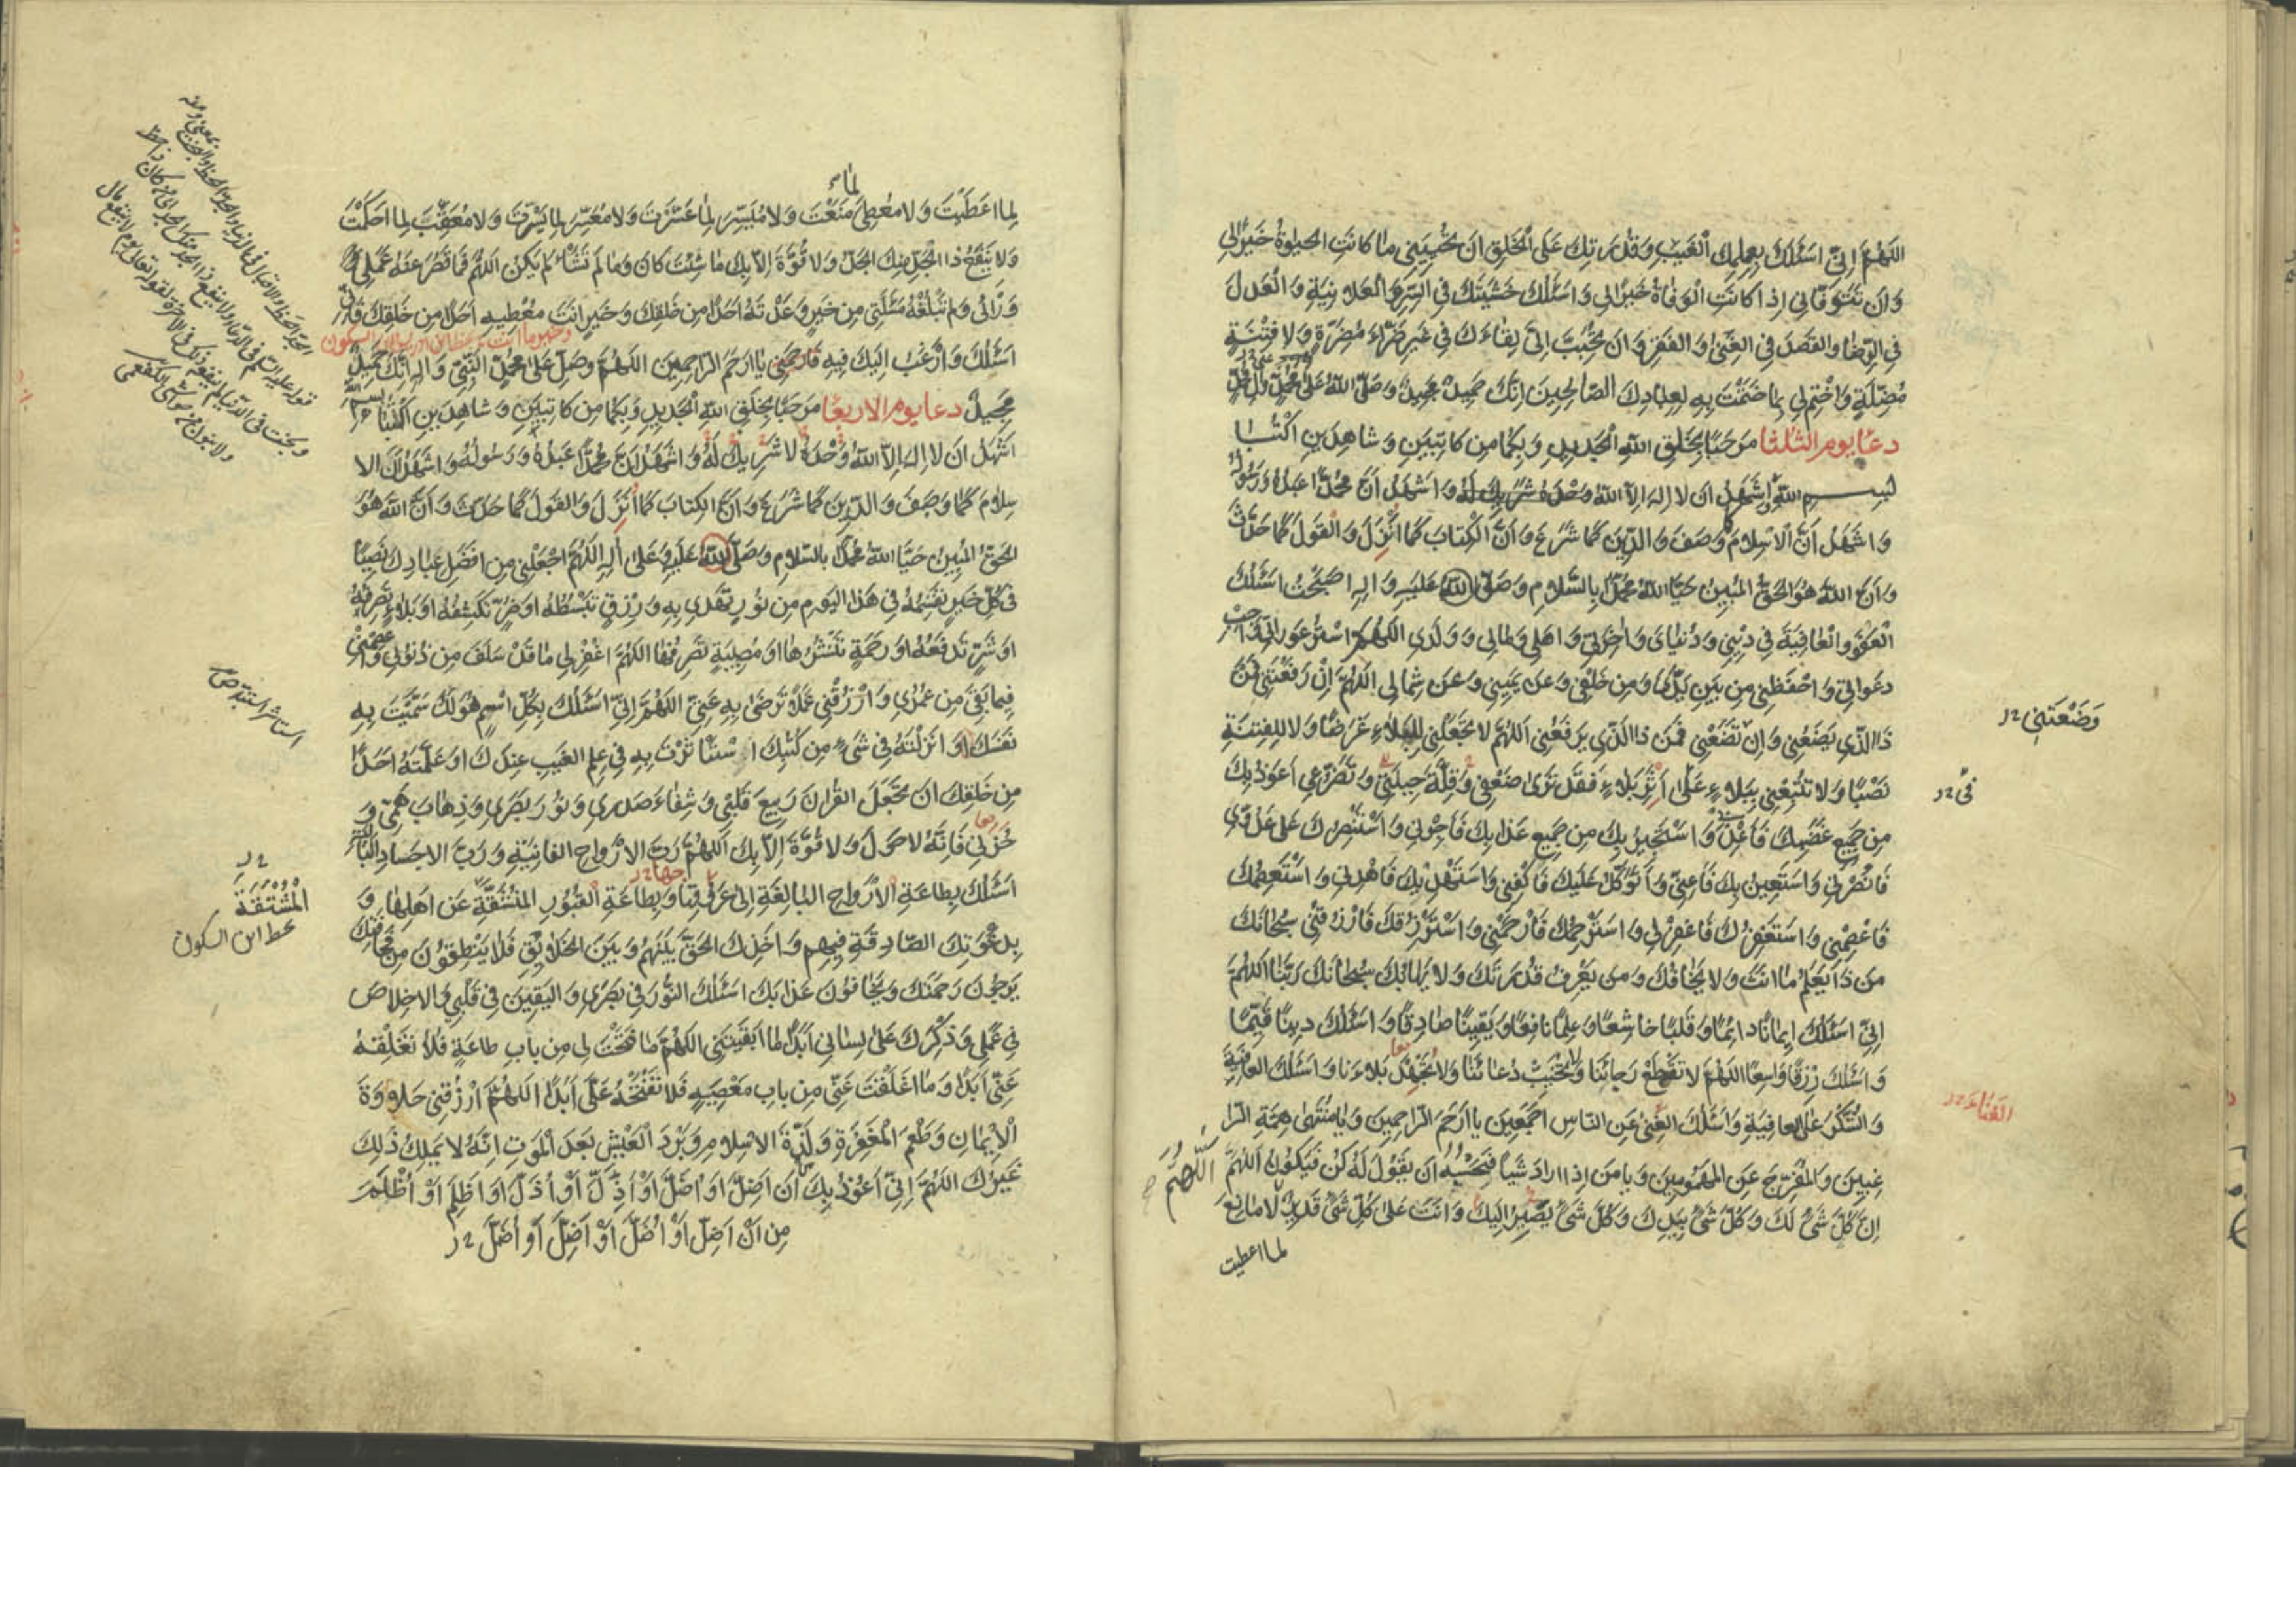 اللهم اني اسئلك بعلمك الغيب وقدرتك على الخلق ان تحييني ما كانت الحيوة خيرا لي
وان تتوفاني اذا كانت الوفاة خيرا لي واسئلك خشيتك في السر والعلانية والعدل
في الرضا والقصد في الغنى والفقر وان تحبب الي لقاءك في غير ضراء مضرة ولا فتنة
مضلة واختم لي بما ختمت به لعبادك الصالحين انك حميد مجيد وصلى الله على محمد وال محمد
دعا يوم الثلثا مرحبا بخلق الله الجديد وبكما من كاتبين وشاهدين اكتبا
بسم الله اشهد ان لا اله الا الله وحده لا شريك له واشهد ان محمدا عبده ورسوله
واشهد ان الاسلام كما وصف والدين كما شرع وان الكتاب كما انزل والقول كما حدث
وان الله هو الحق المبين حيا الله محمدا بالسلام وصلى الله عليه واله اصبحت اسئلك
العفو والعافية في ديني ودنياي واخرتي واهلي ومالي وولدي اللهم استر عوراتي واجب
دعواتي واحفظني من بين يدي ومن خلفي وعن يميني وعن شمالي اللهم ان رفعتني فمن
ذا الذي يضعني وان تضعني فمن ذا الذي يرفعني اللهم لا تجعلني للبلاء غرضا ولا للفتنة
وضعتني
نصبا ولا تتبعني ببلاء على اثر بلاء فقد ترى ضعفي وقلة حيلتي وتضرعي اعوذ بك
في
من جميع غضبك فاعذني واستجير بك من جميع عذابك فاجرني واستنصرك على عدوي
فانصرني واستعين بك فاعني واتوكل عليك فاكفني واستهديك فاهدني واستعصمك
فاعصمني واستغفرك فاغفر لي واسترحمك فارحمني واسترزقك فارزقني سبحانك
من ذا يعلم ما انت ولا يخافك ومن يعرف قدرتك ولا يهابك سبحانك ربنا اللهم
اني اسئلك ايمانا دائما وقلبا خاشعا وعلما نافعا ويقينا صادقا واسئلك دينا قيما
واسئلك رزقا واسعا اللهم لا تقطع رجائنا ولا تخيب دعائنا ولا تجهد بلاءنا واسئلك العافية
والشكر على العافية واسئلك الغنى عن الناس اجمعين يا ارحم الراحمين ويا منتهى همة الرا
الغناء
غبين والمفرج عن المهمومين ويا من اذا اراد شيئا فحسبه ان يقول له كن فيكون اللهم
اللهم
ان كل شيء لك وكل شيء بيدك وكل شيء يصير اليك وانت على كل شيء قدير لا مانع
لما اعطيت
لما
لما اعطيت ولا معطي منعت ولا ميسر لما عسرت ولا معسر لما يسرت ولا معقب لما احكمت
ولا ينفع ذا الجد منك الجد ولا قوة الا بك ما شئت كان وما لم تشاء لم يكن اللهم فما قصر عنه عملي
ورائي ولم تبلغه مسئلتي من خير وعدته احدا من خلقك وخير انت معطيه احدا من خلقك فاني
اسئلك وارغب اليك فيه فارحمني يا ارحم الراحمين اللهم وصل على محمد النبي واله انك حميد
مجيد دعا يوم الاربعا مرحبا بخلق الله الجديد وبكما من كاتبين وشاهدين اكتبا بسم الله
اشهد ان لا اله الا الله وحده لا شريك له واشهد ان محمدا عبده ورسوله واشهد ان الا
سلام كما وصف والدين كما شرع وان الكتاب كما انزل والقول كما حدث وان الله هو
الحق المبين حيا الله محمدا بالسلام وصلى الله عليه وعلى اله اللهم اجعلني من افضل عبادك نصيبا
في كل خير تقسمه في هذا اليوم من نور تهدي به ورزق تبسطه او ضر تكشفه او بلاء تصرفه
او شر تدفعه او رحمة تنشرها او مصيبة تصرفها اللهم اغفر لي ما قد سلف من ذنوبي واعصمني
فيما بقي من عمري وارزقني عملا ترضى به عني اللهم اني اسئلك بكل اسم هو لك سميت به
نفسك او انزلته في شيء من كتبك او استاثرت به في علم الغيب عندك او علمته احدا
من خلقك ان تجعل القران ربيع قلبي وشفاء صدري ونور بصري وذهاب همي و
حزني فانه لا حول ولا قوة الا بك اللهم رب الارواح الفانية ورب الاجساد البالية
اسئلك بطاعة الارواح البالغة الى عروقها وبطاعة القبور المنشقة عن اهلها و
المشتقة
بخط ابن السكون
بدعوتك الصادقة فيهم واخذك الحق بينهم وبين الخلائق فلا ينطقون من مخافتك
يرجون رحمتك ويخافون عذابك اسئلك النور في بصري واليقين في قلبي والاخلاص
في عملي وذكرك على لساني ابدا ما ابقيتني اللهم ما فتحت لي من باب طاعة فلا تغلقه
عني ابدا وما اغلقت عني من باب معصية فلا تفتحه علي ابدا اللهم ارزقني حلاوة
الايمان وطعم المغفرة ولذة الاسلام وبرد العيش بعد الموت انه لا يملك ذلك
غيرك اللهم اني اعوذ بك ان اضل او اضل او اذل او اذل او اظلم او اظلم
من ان اضل او اضل او اضل او اضل